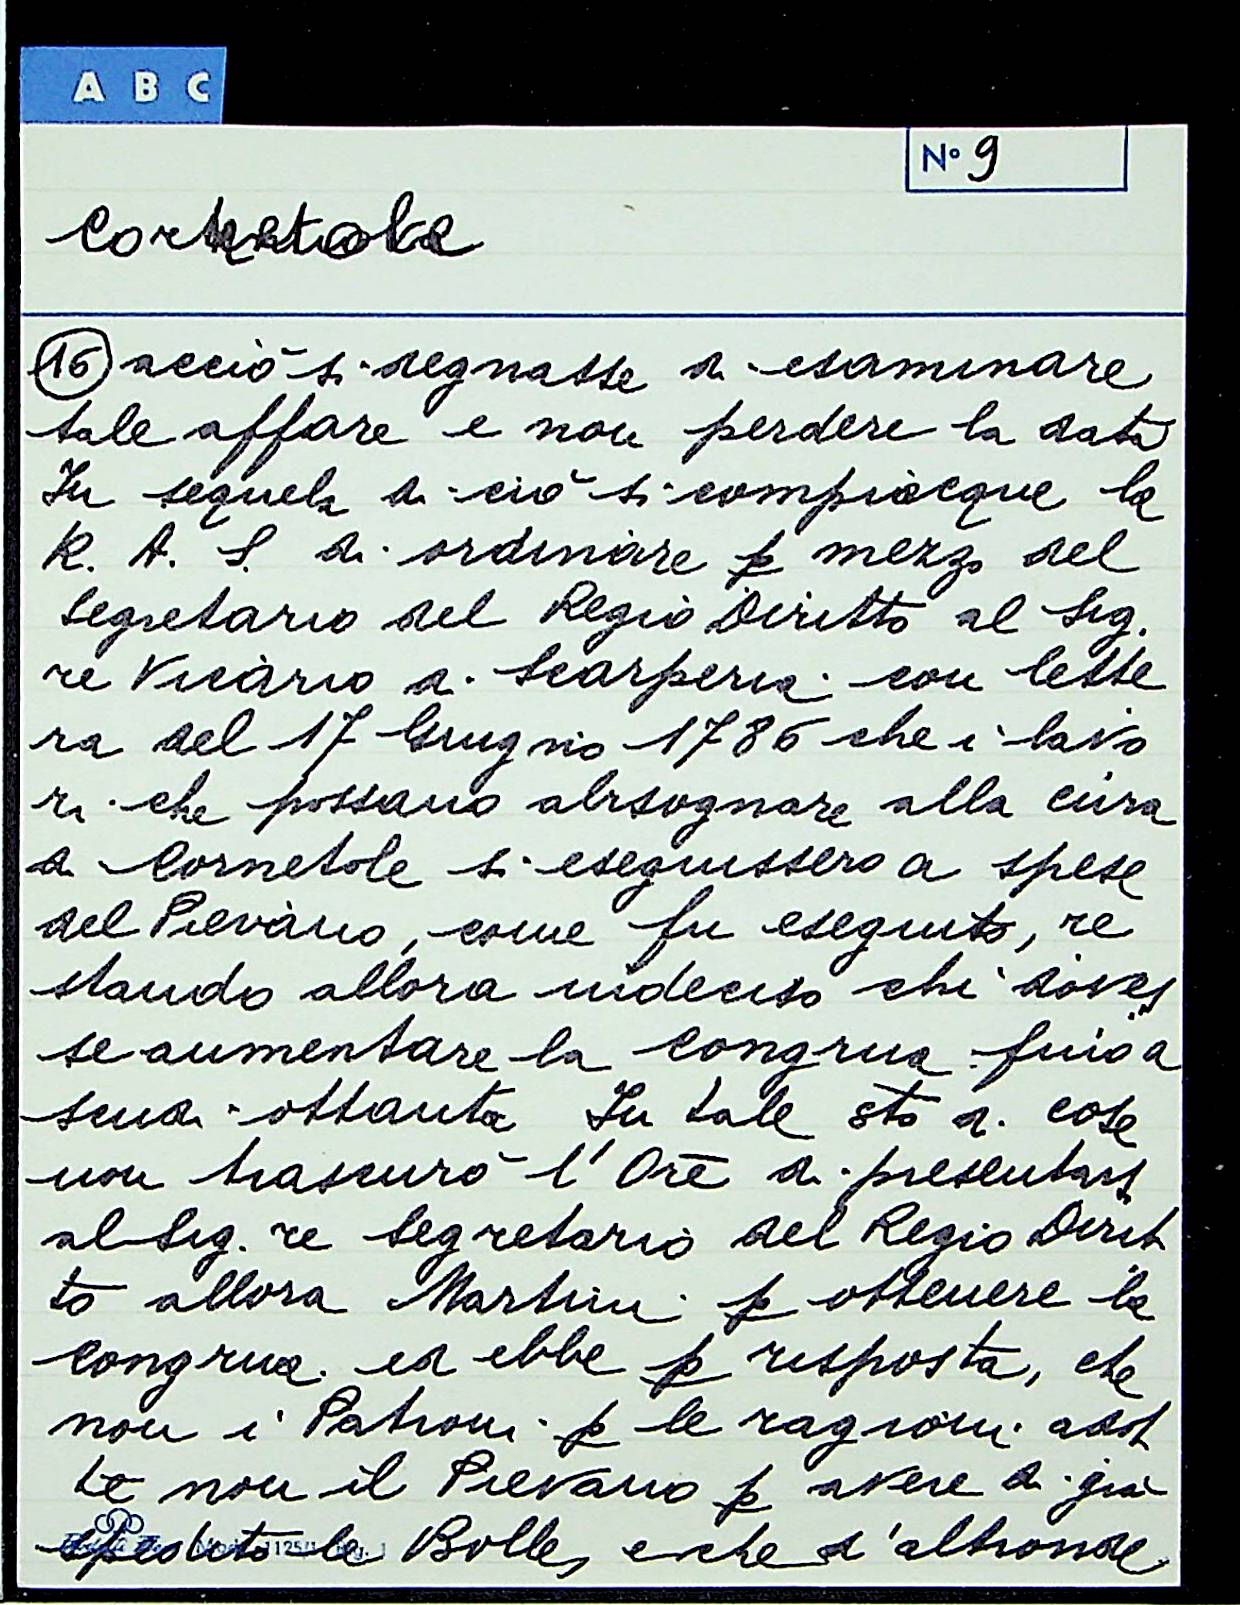 A B C
N° 9
Cornetole
16 acciò si degnasse di esaminare
tale affare e non perdere la data
In sequela di ciò si compiacque la
R. A. S. di ordinare p mezzo del
Segretario del Regio Diritto al Sig.
re Vicario di Scarperia con lette
ra del 17 Giugno 1786 che i lavo
ri che possano abisognare alla cura
di Cornetole si eseguissero a spese
del Pievano, come fu eseguito, re
stando allora indeciso chi doves
se aumentare la congrua fino a
scudi ottanta In tale sto di cose
non trascurò l'Ore di presentarsi
al Sig. re Segretario del Regio Dirit
to allora Martini p ottenere la
congrua ed ebbe p risposta, che
non i Patroni p le ragioni adot
te non il Pievano p avere di già
spedito le Bolle, e che d'altronde